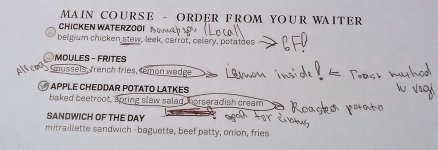 MAIN COURSE - ORDER FROM YOUR WAITER
CHICKEN WATERZOOI (Local)
belgium chicken stew, leek, carrot, celery, potatoes → GF?
MOULES - FRITES
mussels, french fries, lemon wedge → Lemon inside! ←
APPLE CHEDDAR POTATO LATKES
baked beetroot, spring slaw salad, horseradish cream → Roasted potato
SANDWICH OF THE DAY
mitraillette sandwich - baguette, beef patty, onion, fries